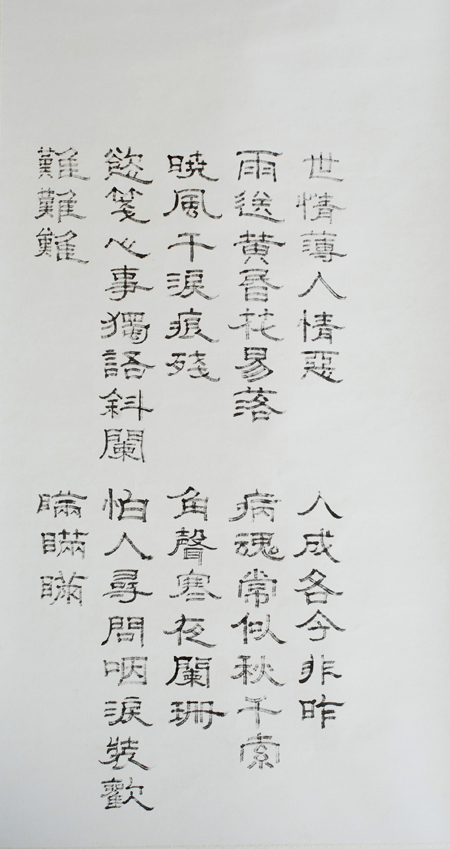 世情薄人情惡
雨送黃昏花易落
曉風干淚痕殘
慾箋心事獨語斜闌
難難難
人成各今非昨
病魂常似秋千索
角聲寒夜闌珊
怕人尋問咽淚裝歡
瞞瞞瞞